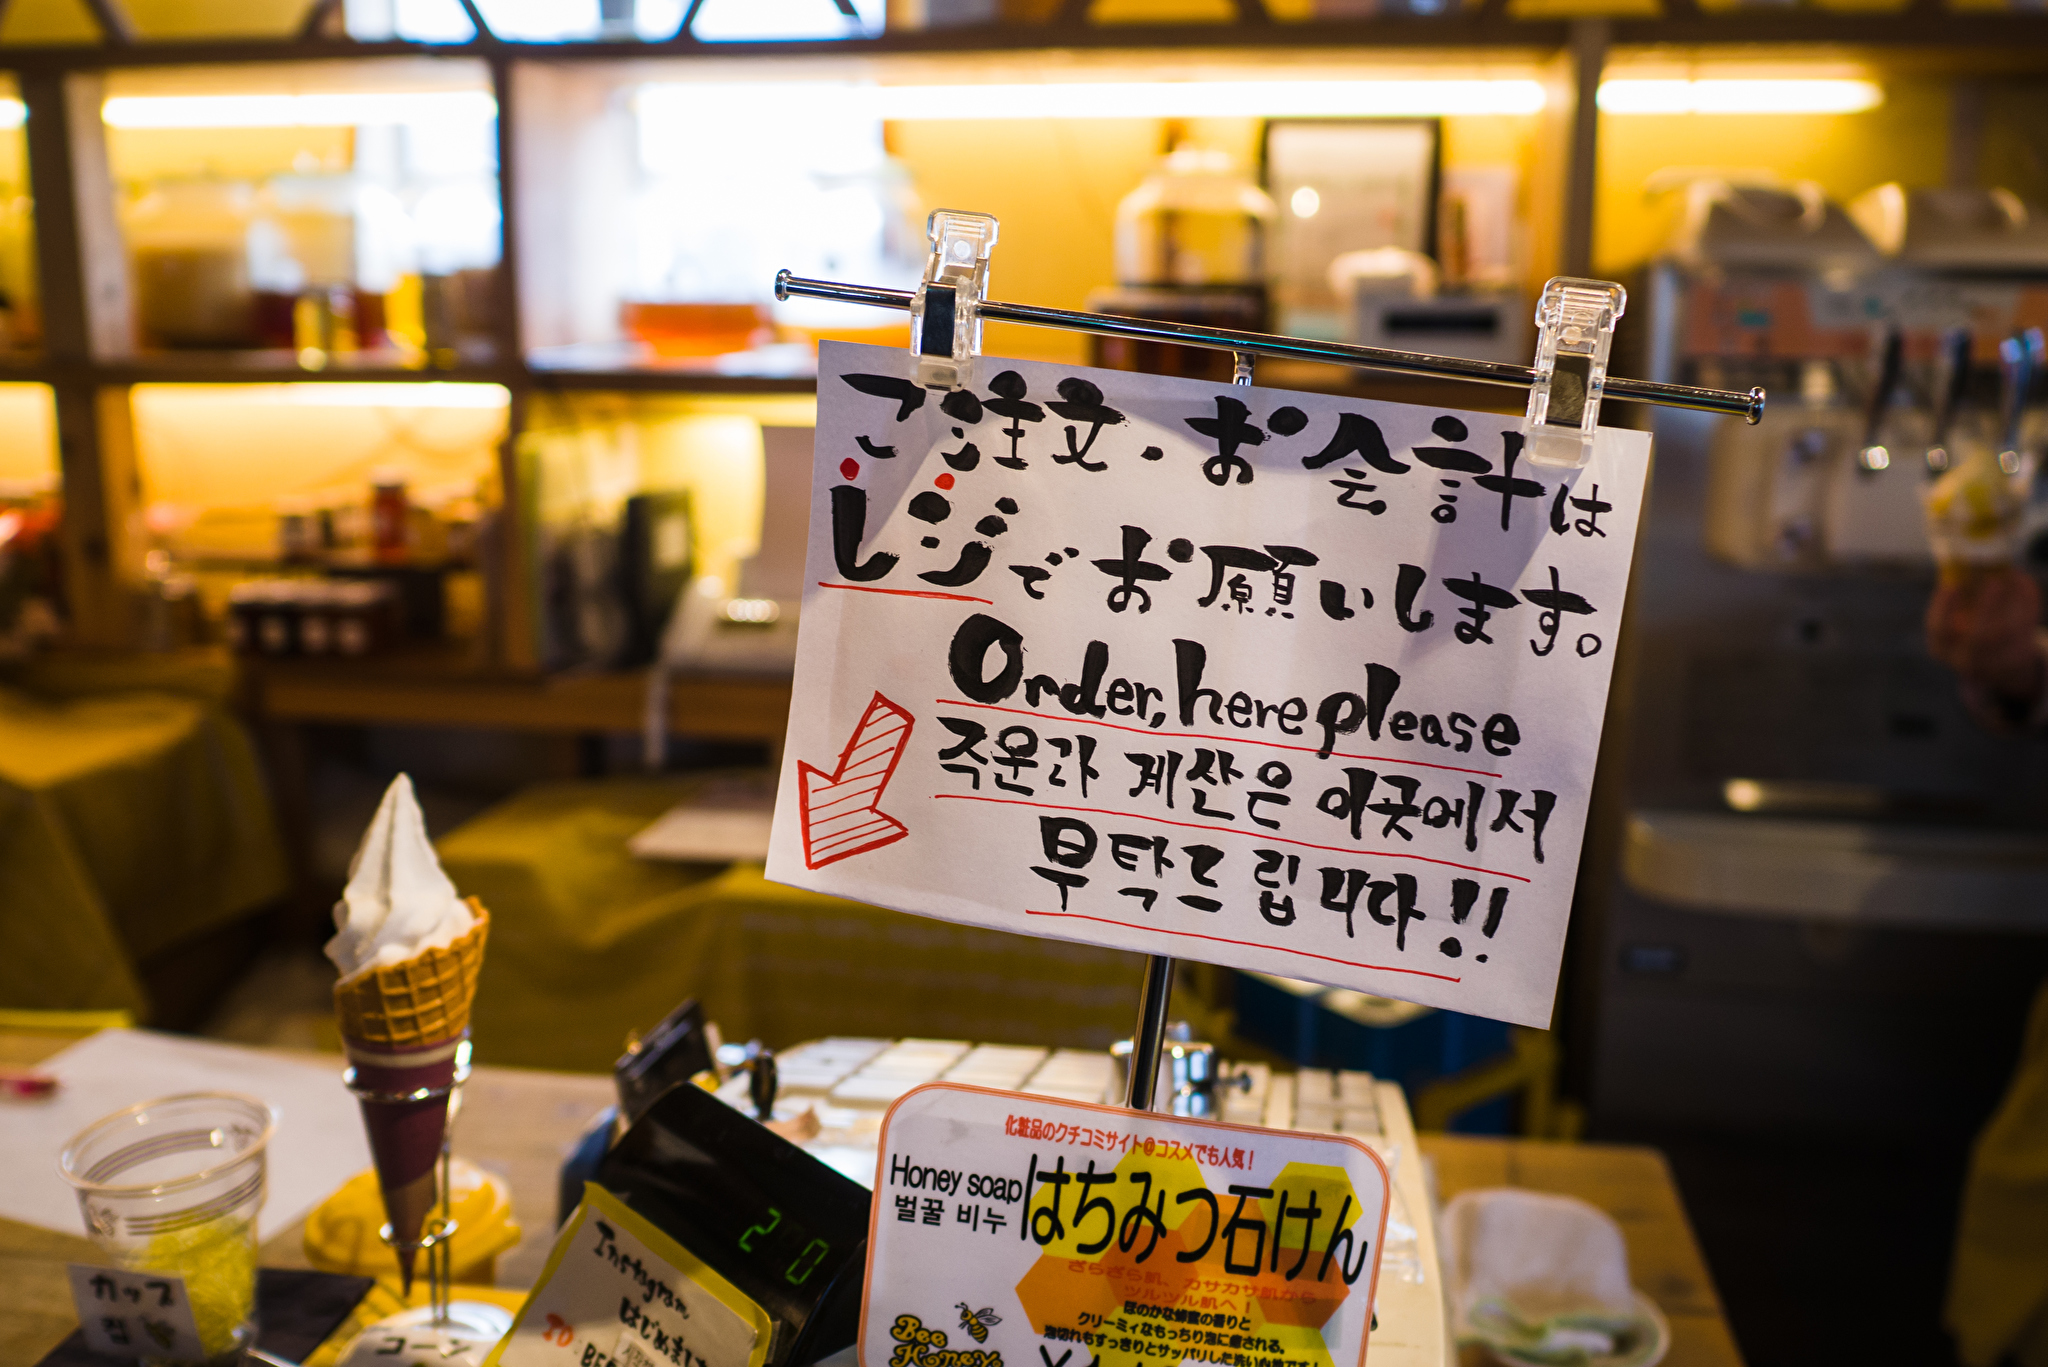 ご注文・お会計は
レジでお願いします。
Order, here please
주운과 계산은 이곳에서
부탁드립니다!!
化粧品のクチコミサイト@コスメでも人気!
Honey soap
벌꿀 비누
はちみつ石けん
ざらざら肌、カサカサ肌から
ツルツル肌へ!
ほのかな蜂蜜の香りと
クリーミィなもっちり泡に癒される。
泡切れもすっきりとサッパリした洗い心地です!
Bee
Honey
20
Instagram
はじめまし
ID:
カップ
コーン